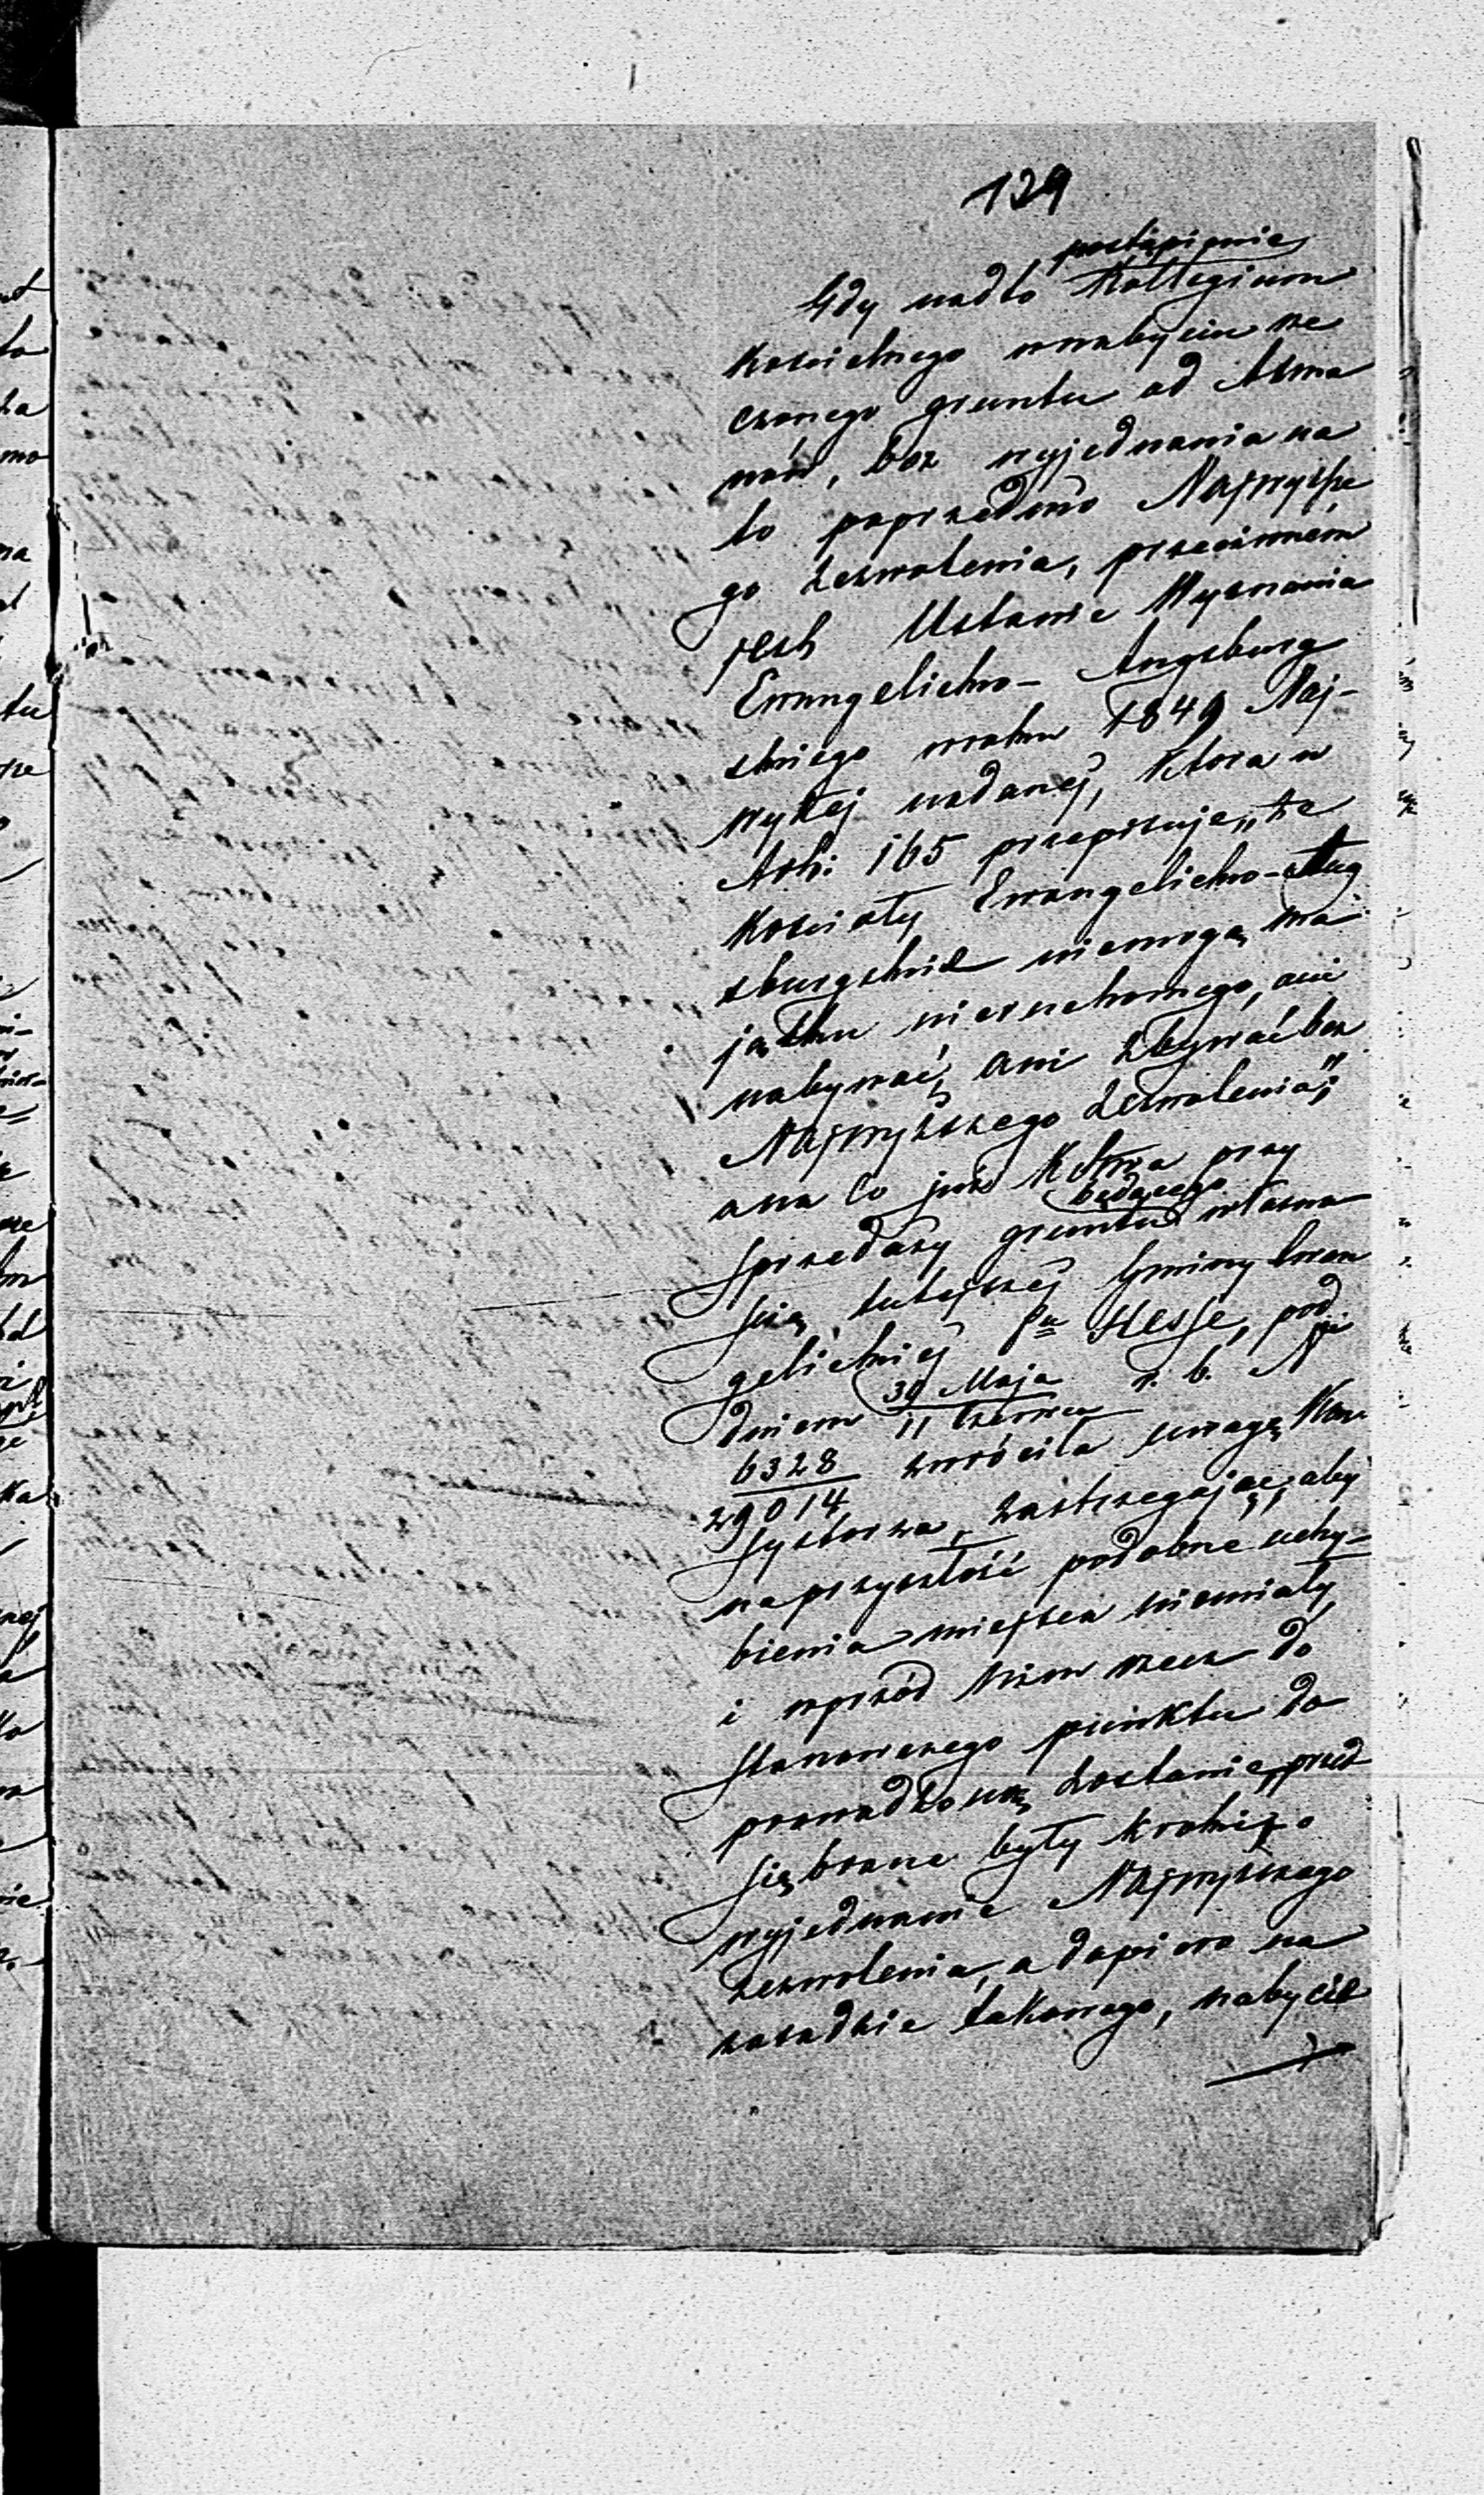 139
postąpienie
Gdy nadto Kollegium
Kościelnego w nabyciu rze
czonego gruntu od Asma
nów, bez wyjednania na
to poprzednio Najwyższe
go zezwolenia, przeciwném
jest Ustawie Wyznania
Ewangelicko- Augsburg
skiego w roku 1849 Naj-
wyżej nadanej, która w
Art: 165 przepisuje „że
Kościoły Ewangelicko-Aug
sburgskie niemogą ma
jątku nieruchomego, ani
nabywać, ani zbywać bez
Najwyższego zezwolenia”;
a na co już Kttna przy
będącego
sprzedaży gruntu własno
ścią tutejszej Gminy Ewan
gelickiej Pu Hesse, pod
dniem 30 Maja r. b. N
11 Czerwca
6328 zwróciła uwagę Kon
29014
systorza, zastrzegając, aby
na przyszłość podobne uchy-
bienia miejsca niemiały
i wprzód nim rzecz do
stanowczego punktu do
prowadzoną zostanie, przed
siębrane były kroki o
wyjednanie Najwyższego
zezwolenia, a dopiero na
zasadzie takowego, nabycie